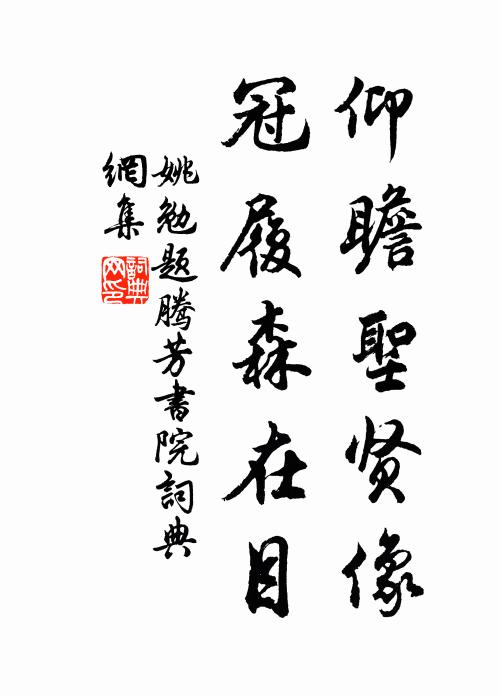 仰瞻聖贤像
冠履森在目
姚勉题腾芳書院詞典
網集
詞典
网印